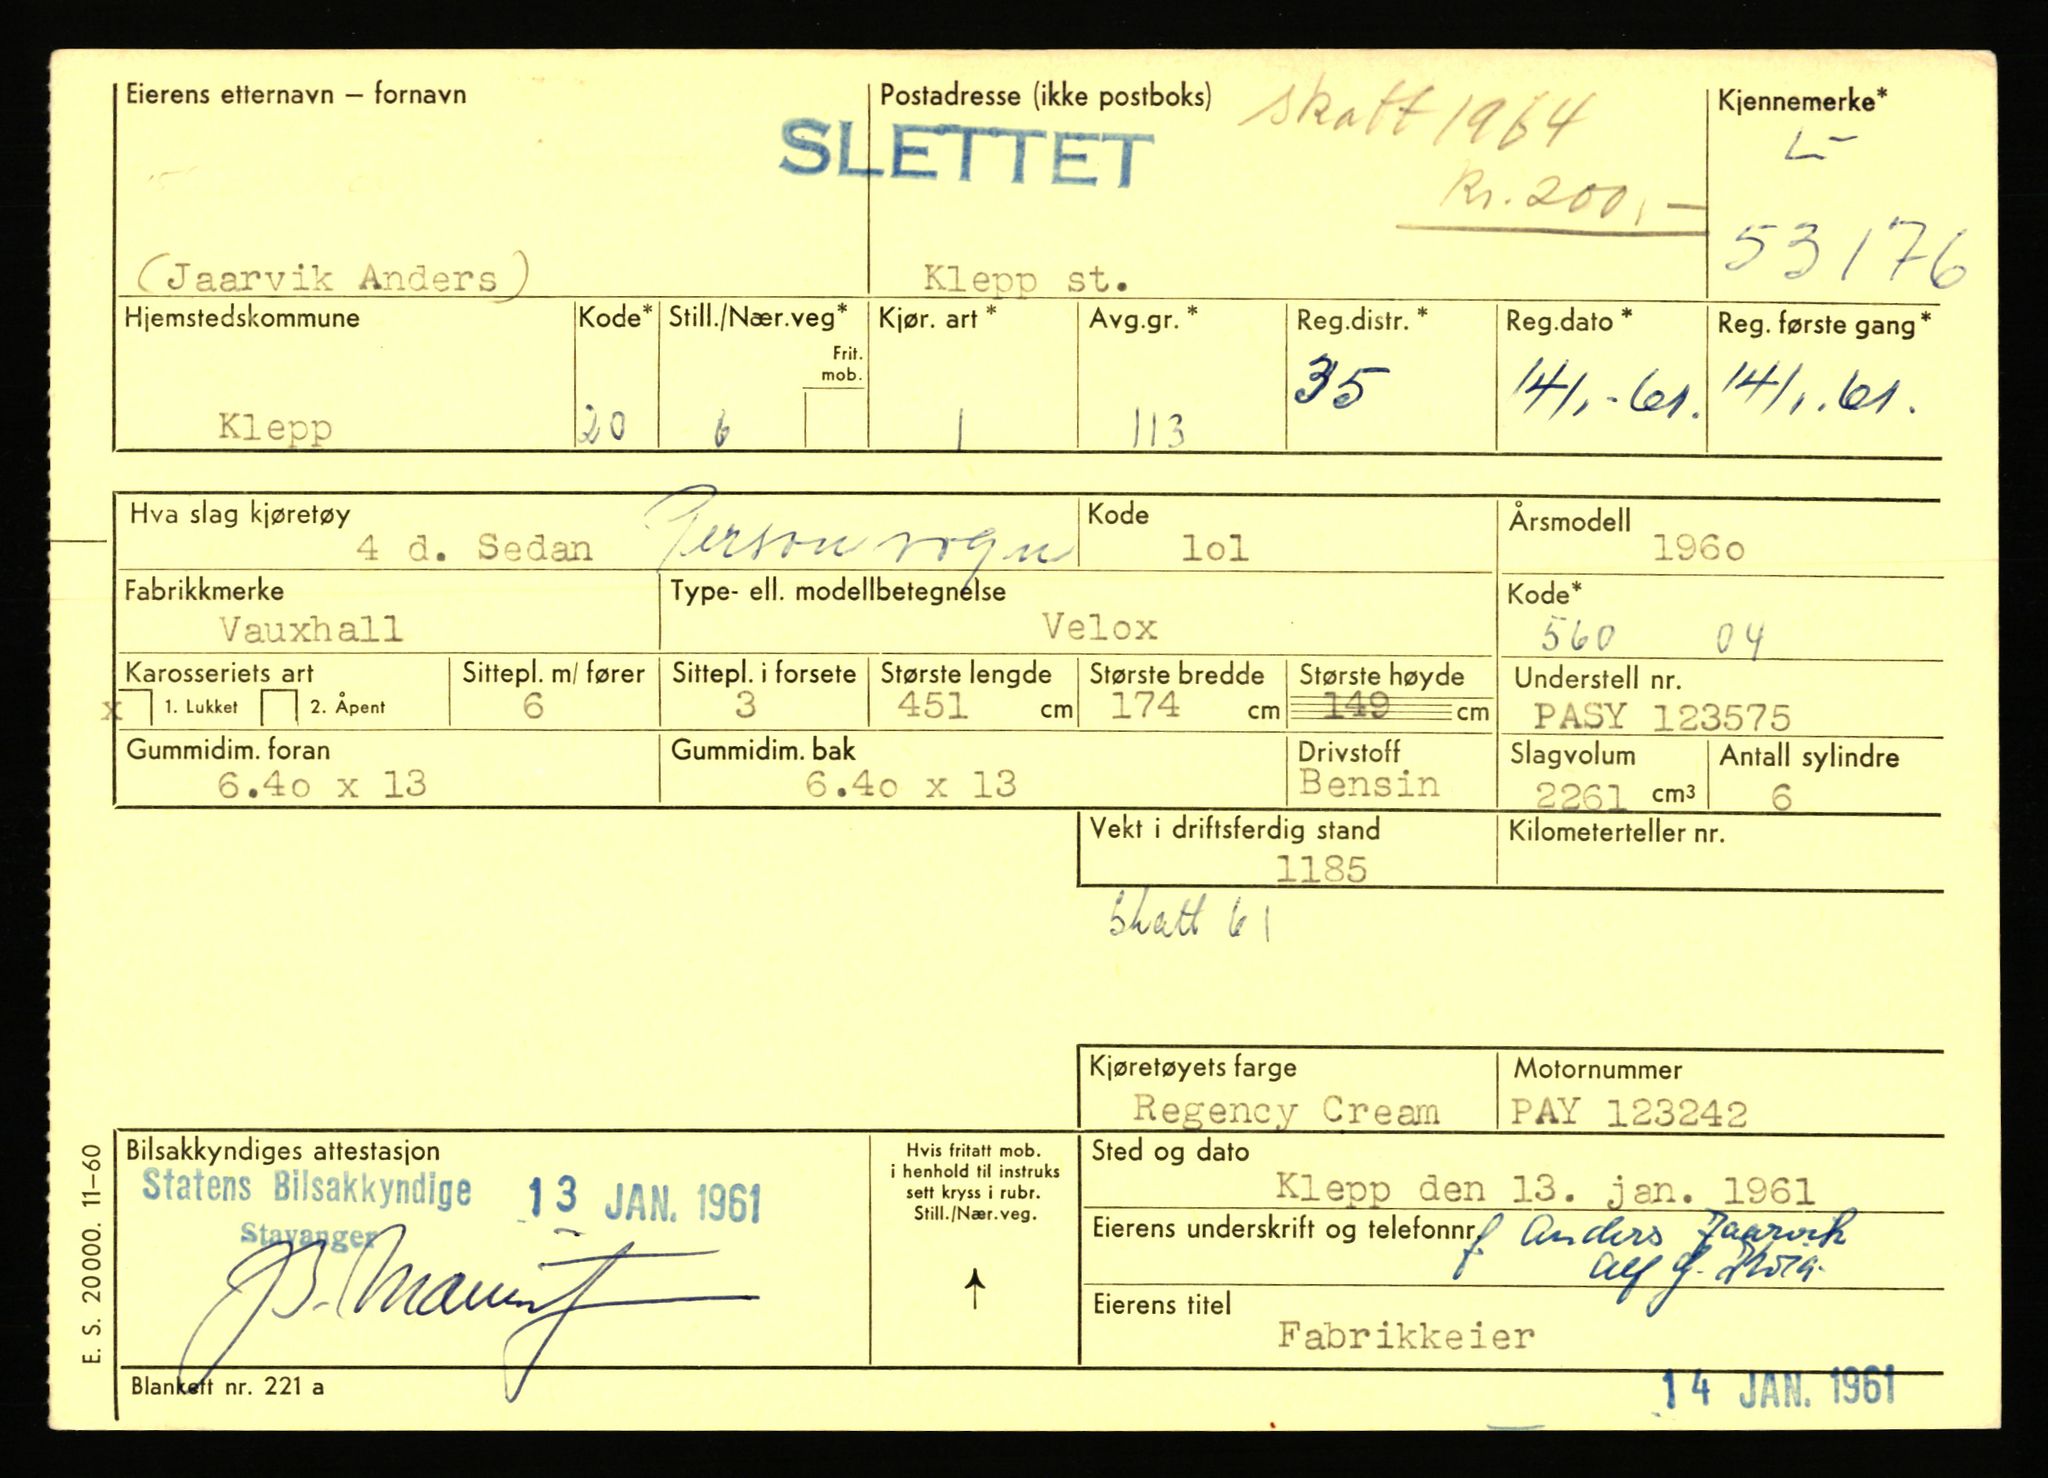 Eierens etternavn – fornavn
Postadresse (ikke postboks)
skatt 1964
Kjennemerke*
L-
SLETTET
kr. 200,-
53176
(Jaarvik Anders)
Klepp st.
Hjemstedskommune
Kode*
Still./Nær.veg*
Frit. mob.
Kjør. art *
Avg.gr. *
Reg.distr. *
Reg.dato *
Reg. første gang *
Klepp
20
6
1
113
35
14/1.-61.
14/1.61.
Hva slag kjøretøy
4 d. Sedan Personvogn
Kode
lol
Årsmodell
196o
Fabrikkmerke
Vauxhall
Type- ell. modellbetegnelse
Velox
Kode*
560 04
Karosseriets art
x 1. Lukket 2. Åpent
Sittepl. m/ fører
6
Sittepl. i forsete
3
Største lengde
451 cm
Største bredde
174 cm
Største høyde
149 cm
Understell nr.
PASY 123575
Gummidim. foran
6.4o x 13
Gummidim. bak
6.4o x 13
Drivstoff
Bensin
Slagvolum
2261 cm³
Antall sylindre
6
Vekt i driftsferdig stand
1185
Kilometerteller nr.
Skatt 61
Kjøretøyets farge
Regency Cream
Motornummer
PAY 123242
Bilsakkyndiges attestasjon
Statens Bilsakkyndige 13 JAN. 1961
Stavanger
Hvis fritatt mob.
i henhold til instruks
sett kryss i rubr.
Still./Nær.veg.
Sted og dato
Klepp den 13. jan. 1961
Eierens underskrift og telefonnr.
f. Anders Jaarvik
Alf G.
Eierens titel
Fabrikkeier
E. S. 20000. 11–60
Blankett nr. 221 a
14 JAN. 1961